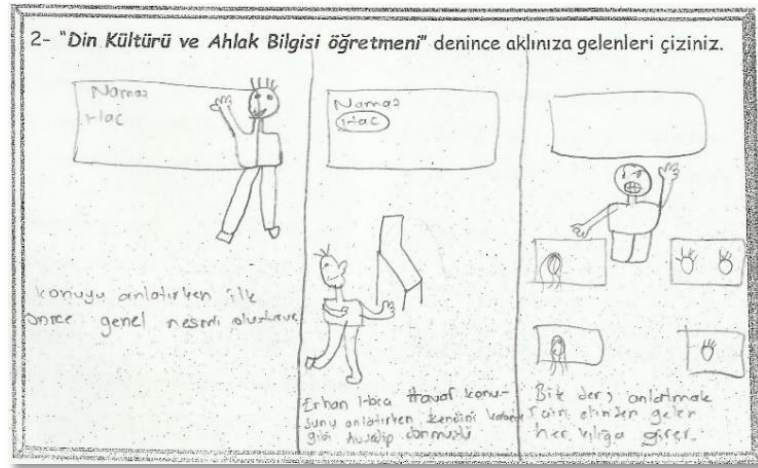 2- "Din Kültürü ve Ahlak Bilgisi öğretmeni" denince aklınıza gelenleri çiziniz.
Namaz
Hac
konuyu anlatırken ilk
önce genel resmi
Namaz
Hac
Erhan Hoca tavaf konu-
sunu anlatırken kendini
gibi dönmüştü
Bize ders anlatmak
için elinden gelen
her kılığa girer.